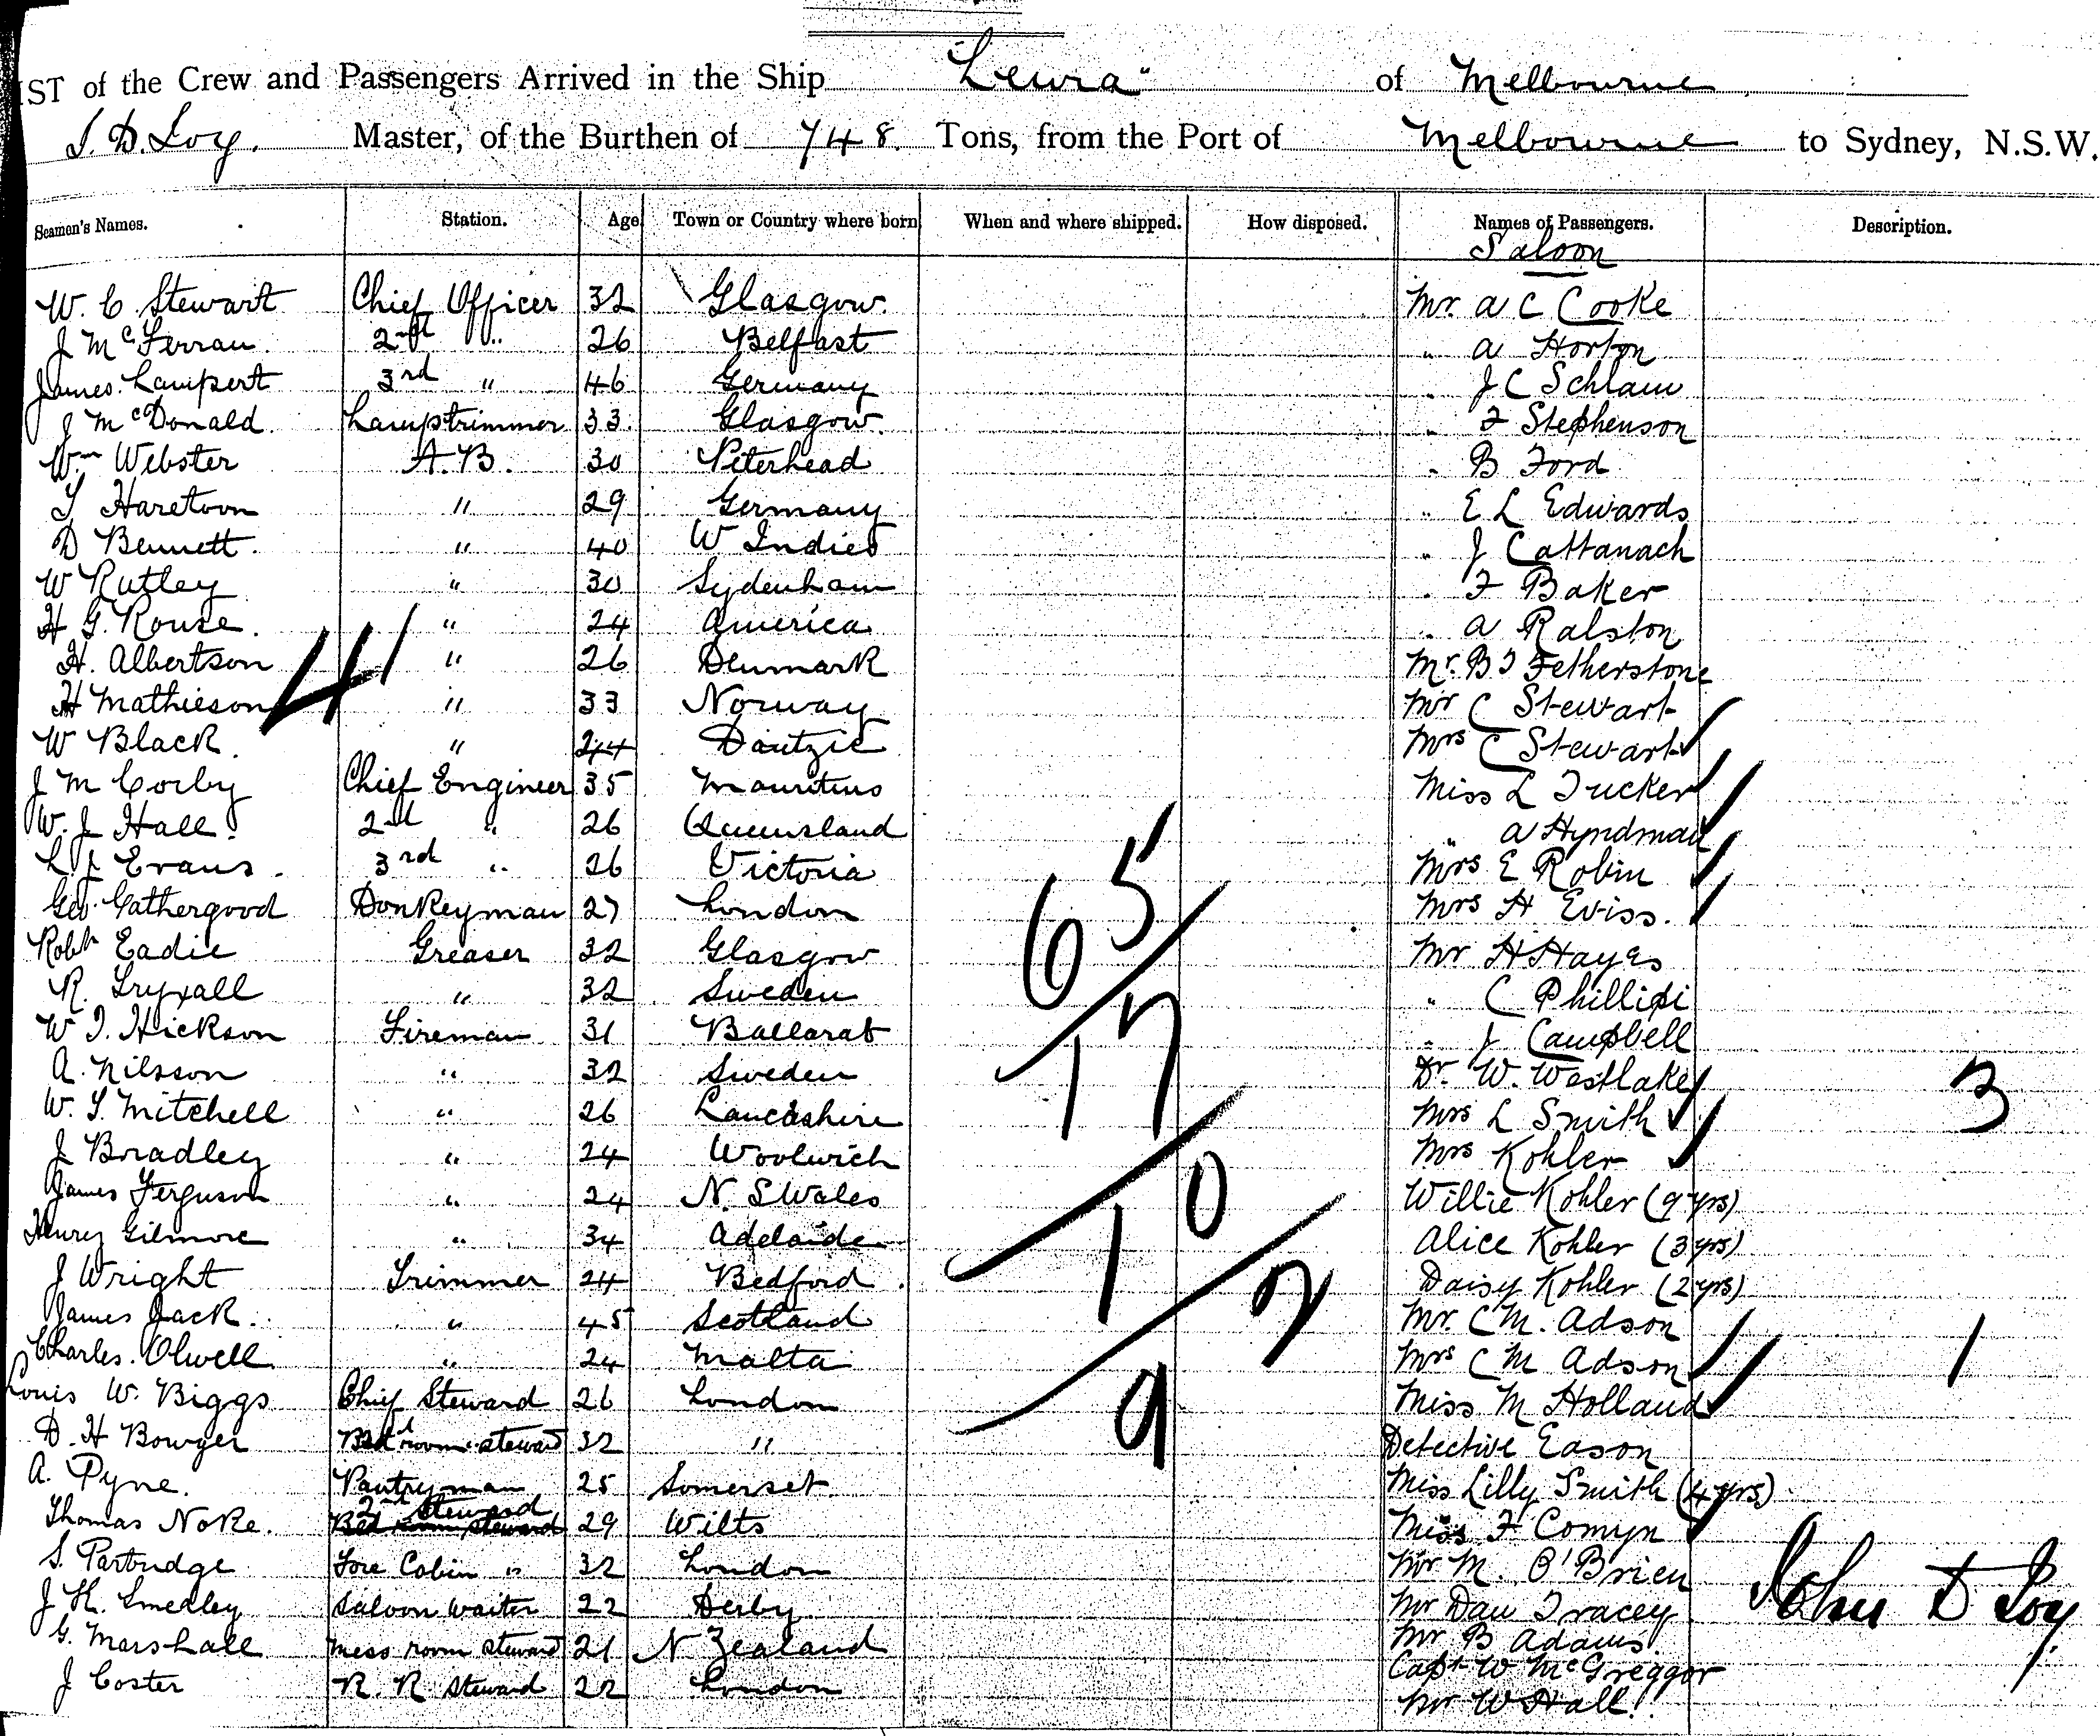 IST of the Crew and Passengers Arrived in the Ship "Leura" of Melbourne
J. D. Loy. Master, of the Burthen of 748. Tons, from the Port of Melbourne to Sydney, N.S.W.
Seamen's Names. Station. Age Town or Country where born When and where shipped. How disposed. Names of Passengers. Description.
Saloon
W. C. Stewart Chief Officer 32 Glasgow. Mr. A C Cooke
J McFerran 2nd " 26 Belfast " A Horton
James Lampert 3rd " 46 Germany " J C Schlam
J McDonald Lamptrimmer 33 Glasgow. " F Stephenson
Wm Webster A.B. 30 Peterhead " B Ford
" 29 Germany " E L Edwards
D Bennett. " 40 W Indies " J Cattanach
W Rutley " 30 Sydenham " F Baker
H G. Rouse. " 24 America " A Ralston
H. Albertson " 26 Denmark Mr. B T Fetherstone
H Mathieson " 33 Norway Mr C Stewart
41
W Black. " 24 Dantzic Mrs C Stewart
J M Corby Chief Engineer 35 Mauritius Miss L Tucker
W. J Hall. 2nd " 26 Queensland " A Hyndman
L J Evans. 3rd " 26 Victoria Mrs E Robin
65
Geo. Gathergood Donkeyman 27 London Mrs H Eviss.
Robt Eadie Greaser 32 Glasgow Mr H Hayes
R. " 32 Sweden " C Phillipi
W. T. Hickson Fireman 31 Ballarat " J Campbell
17
A. Nilsson " 32 Sweden Dr. W. Westlake
W. S. Mitchell " 26 Lancashire Mrs L Smith 3
J Bradley " 24 Woolwich Mrs Kohler
James Ferguson " 24 N. S Wales Willie Kohler (9 yrs)
10
Henry Gilmore " 34 Adelaide Alice Kohler (3 yrs)
J Wright Trimmer 24 Bedford. Daisy Kohler (2 yrs)
2
James Jack. " 45 Scotland Mr. C M. Adson
Charles. Olwell " 24 Malta Mrs C M Adson 1
Louis W. Biggs Chief Steward 26 London Miss M Holland
9
D. H Bowyer Bed room steward 32 " Detective Eason
A. Pyne. Pantryman 25 Somerset Miss Lilly Smith (4 yrs)
2nd Steward
Thomas Noke. Bed room steward 29 Wilts Miss F Comyn
S. Partridge Fore Cabin " 32 London Mr M. O'Brien
J H. Smedley Saloon Waiter 22 Derby Mr Dan Tracey
John D Loy
G. Marshall Mess room steward 21 N Zealand Mr B Adams
Capt W McGreggor
J Coster R. R. Steward 22 London Mr W Hall.